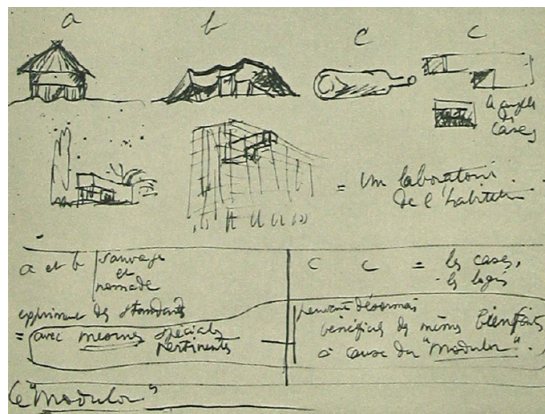 a b c c
le
des
cases
= un laboratoire
de l'habitation
a et b sauvage
et
nomade
expriment des standards
= avec mesures spéciales
pertinentes
c c = les cases,
les logis
peuvent désormais
bénéficier des mêmes bienfaits
à cause du "Modulor".
le "Modulor"